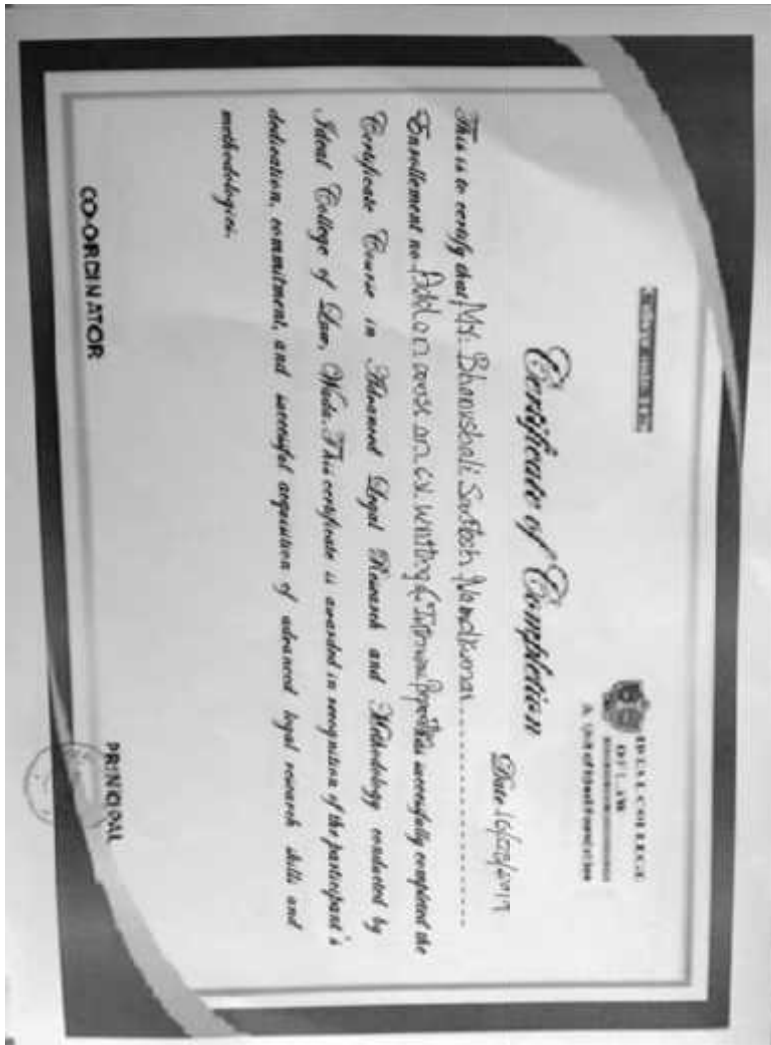 IDEAL COLLEGE
OF LAW
A Unit of Ideal Foundation
Certificate of Completion
Date 16/03/2019
This is to certify that Mr. Bhanushali Santosh Nandkumar
Enrollement no. Add on course on cv. writing & has successfully completed the
Certificate Course in Advanced Legal Research and Methodology conducted by
Ideal College of Law, Wada. This certificate is awarded in recognition of the participant's
dedication, commitment, and successful acquisition of advanced legal research skills and
methodologies.
CO-ORDINATOR
PRINCIPAL